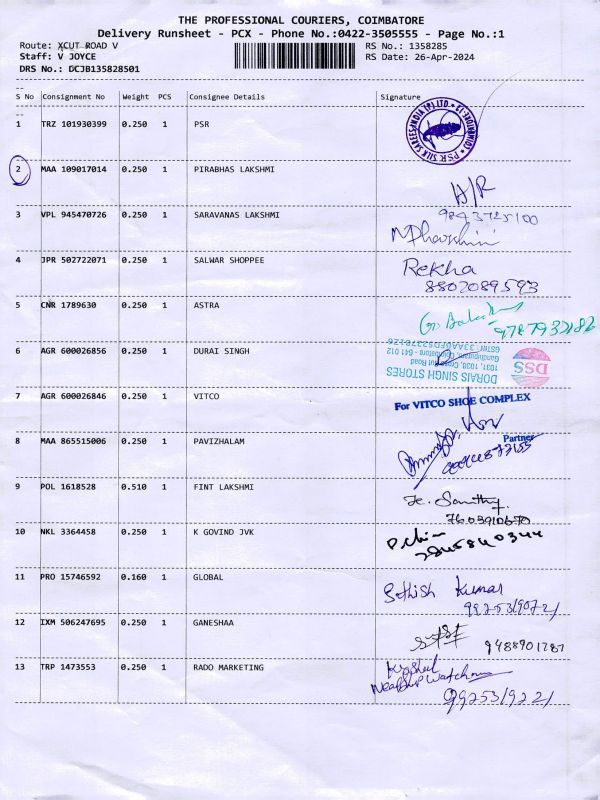 THE PROFESSIONAL COURIERS, COIMBATORE
Delivery Runsheet - PCX - Phone No.:0422-3505555 - Page No.:1
Route: XCUT ROAD V RS No.: 1358285
Staff: V JOYCE RS Date: 26-Apr-2024
DRS No.: DCJB135828501
S No Consignment No Weight PCS Consignee Details Signature
1 TRZ 101930399 0.250 1 PSR
2 MAA 109017014 0.250 1 PIRABHAS LAKSHMI
A/R
3 VPL 945470726 0.250 1 SARAVANAS LAKSHMI
9843725100
4 JPR 502722071 0.250 1 SALWAR SHOPPEE Rekha
8802089593
5 CNR 1789630 0.250 1 ASTRA
6 AGR 600026856 0.250 1 DURAI SINGH
DSS
DORAIS SINGH STORES
1037, 1038, Cross Cut Road
Gandhipuram, Coimbatore - 641 012
7 AGR 600026846 0.250 1 VITCO For VITCO SHOE COMPLEX
Partner
8 MAA 865515006 0.250 1 PAVIZHALAM
9 POL 1618528 0.510 1 FINT LAKSHMI
7603910670
10 NKL 3364458 0.250 1 K GOVIND JVK
11 PRO 15746592 0.160 1 GLOBAL Sethish Kumar
12 IXM 506247695 0.250 1 GANESHAA
9488901287
13 TRP 1473553 0.250 1 RADO MARKETING
9925319221